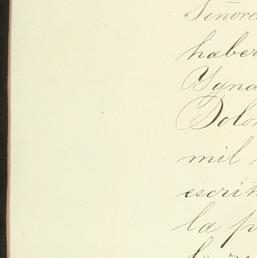 Señore
haber
Ygna
Dolor
mil
escrit
la p